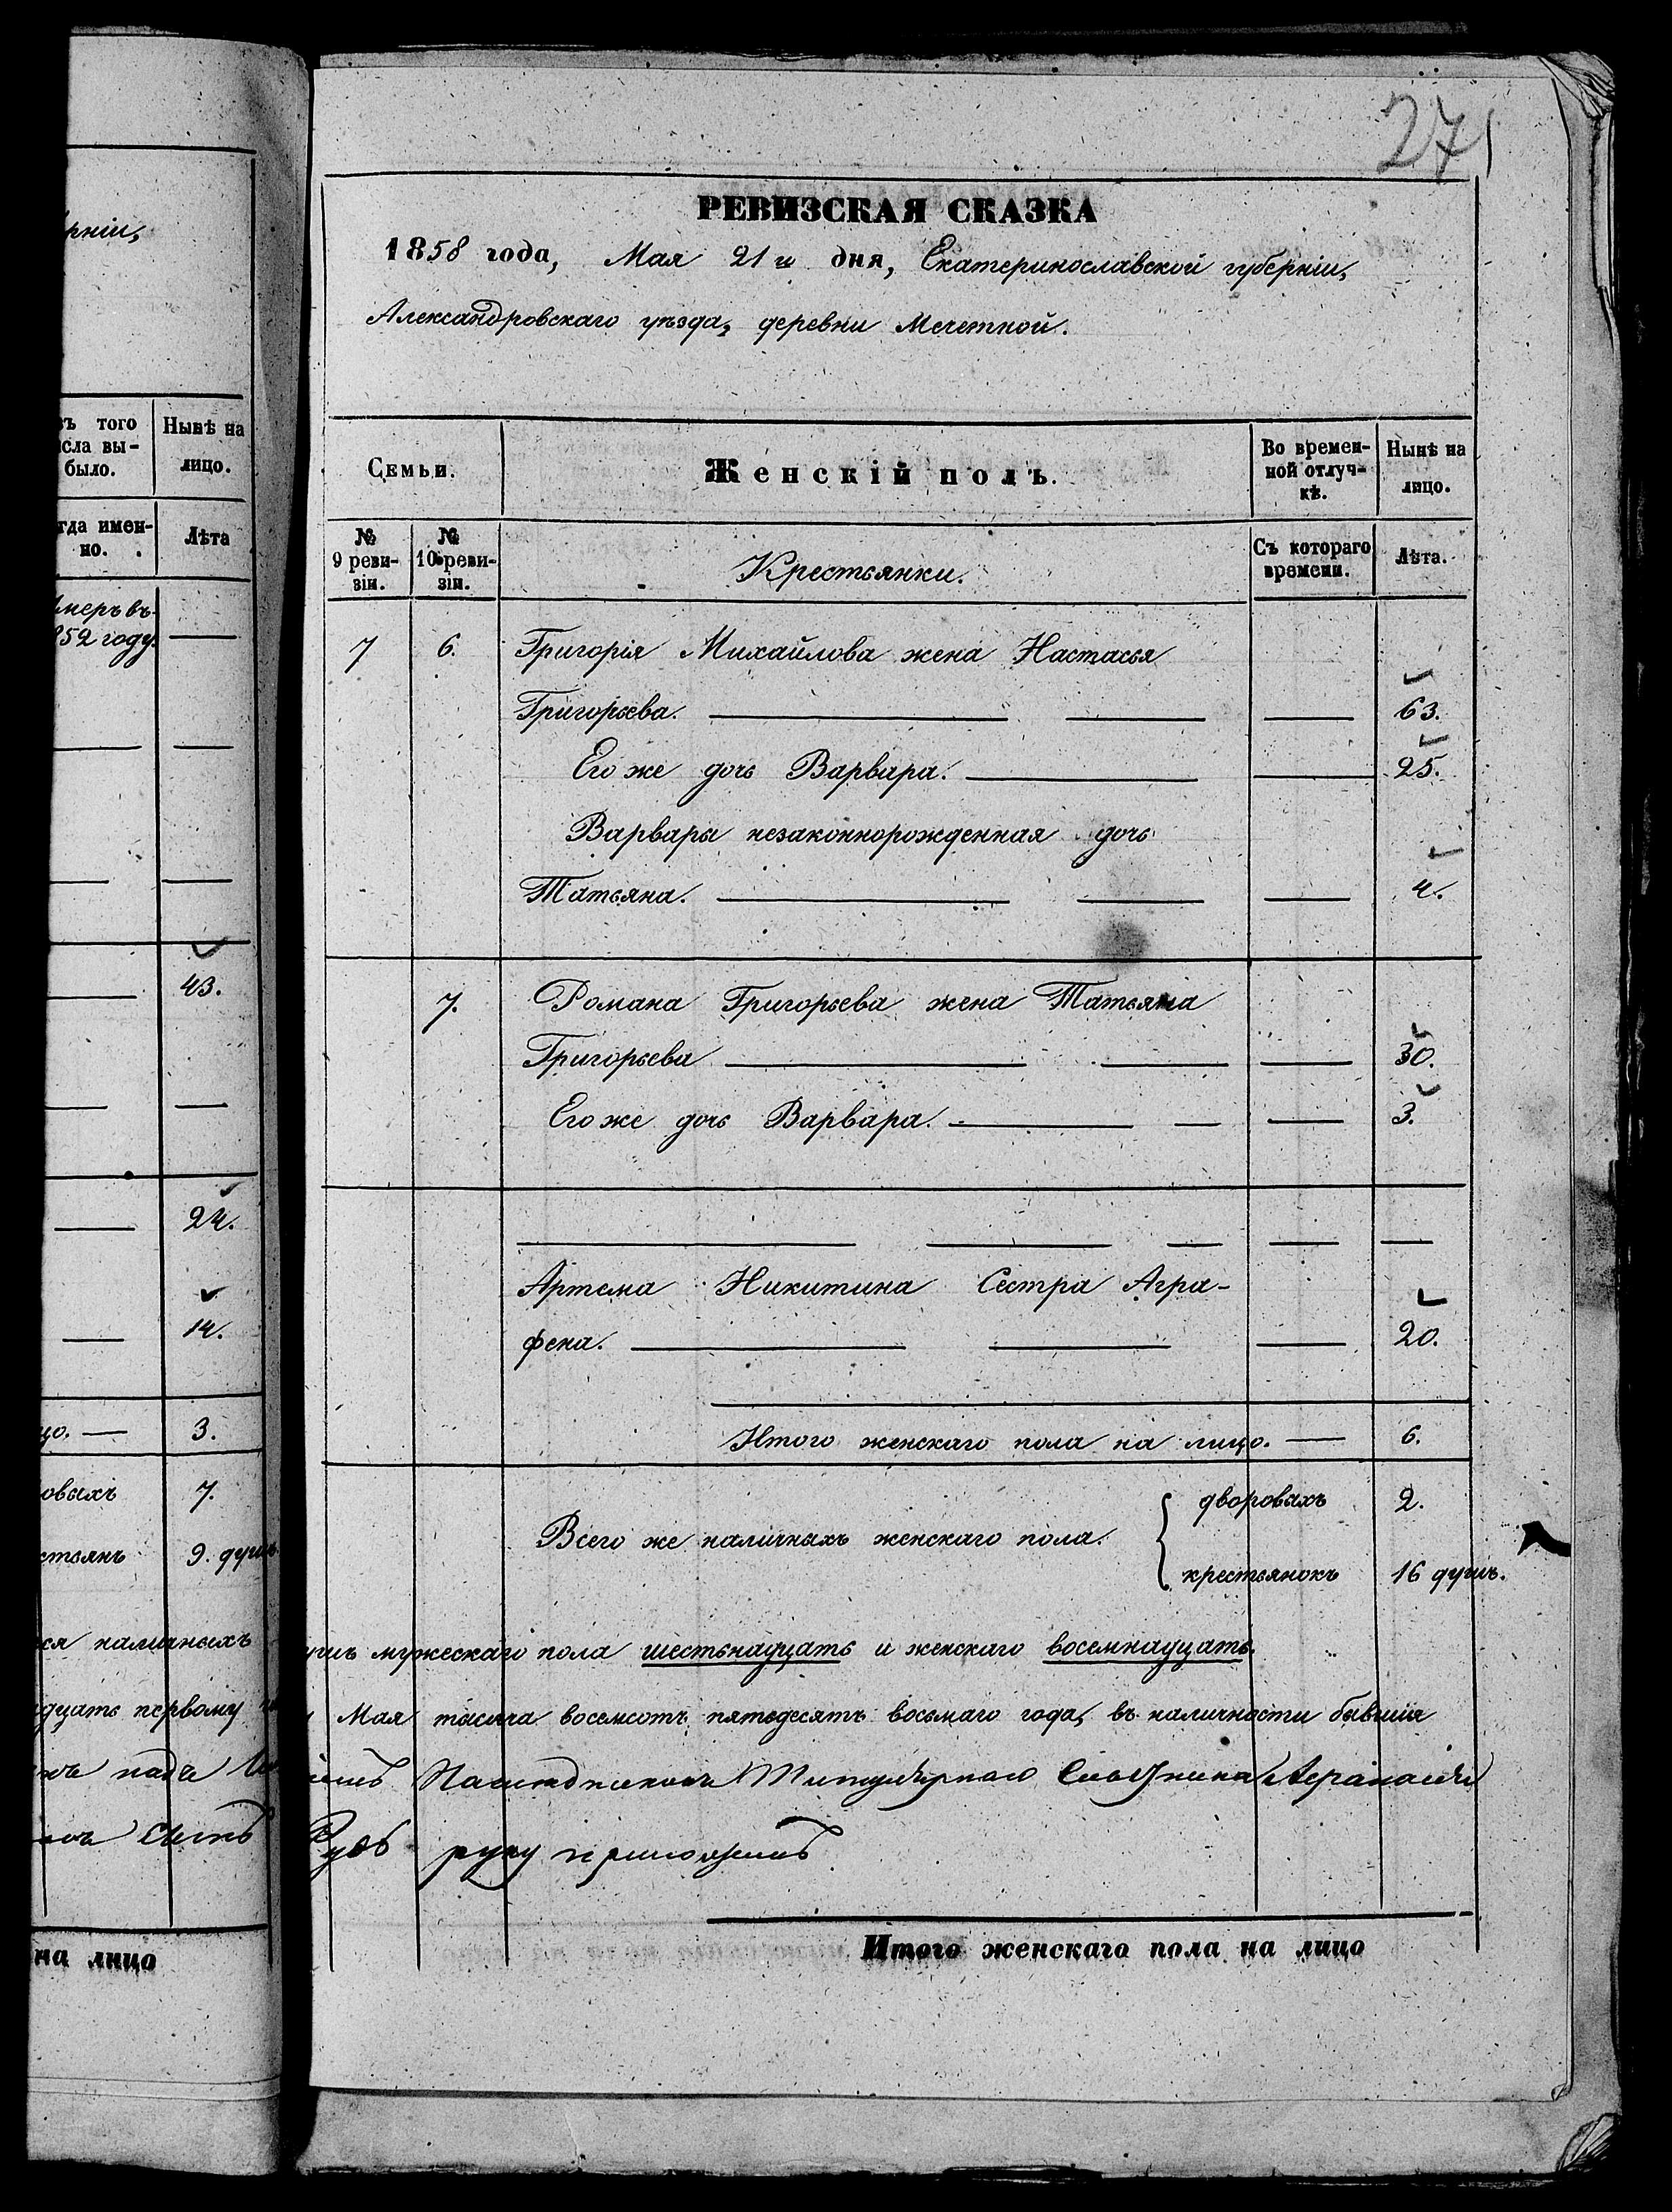 271
рніи,
РЕВИЗСКАЯ СКАЗКА
1858 года, Мая 21го дня, Екатеринославской губерніи,
Александровскаго уѣзда, деревни Мечетной.
того
сла вы-
было.
Нынѣ на
лицо.
гда имен-
но.
Лѣта
Семьи.
Женскій полъ.
Во времен-
ной отлуч-
кѣ.
Нынѣ на
лицо.
№
9 реви-
зіи.
№
10 реви-
зіи.
Крестьянки.
Съ котораго
времени.
Лѣта.
меръ въ
852 году.
7 6. Григорія Михайлова жена Настасья
Григорьева. 63.
Его же дочь Варвара. 25.
Варвары незаконнорожденная дочь
Татьяна. 4.
43.
7. Романа Григорьева жена Татьяна
Григорьева 30.
Его же дочь Варвара. 3.
24.
Артема Никитина Сестра Агра-
14.
фена. 20.
цо. 3.
Итого женскаго пола на лицо. 6.
овыхъ 7.
дворовыхъ 2.
Всего же наличныхъ женскаго пола.
стьянъ 9. душъ
крестьянокъ 16 душъ.
ся наличныхъ
ушъ мужескаго пола шестьнадцать и женскаго восемнадцать.
дцать первому
Мая тысяча восемсотъ пятьдесятъ восьмаго года, въ наличности бывшія
надъ
Титулярнаго Совѣтника Афанасій
сынъ
руку приложилъ
на лицо
Итого женскаго пола на лицо